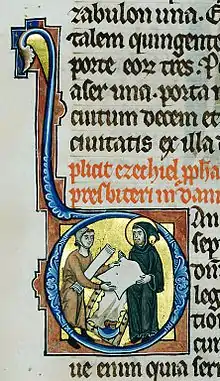 zabulon una. E
talem quingente
porte eoꝝ tres. P
aser una. porta n
cuitum decem et
ciuitatis ex illa d
plicit ezechiel ꝓpha
presbiteri in dani
D An
sep
leg
tion
cur
ue enim quia ser